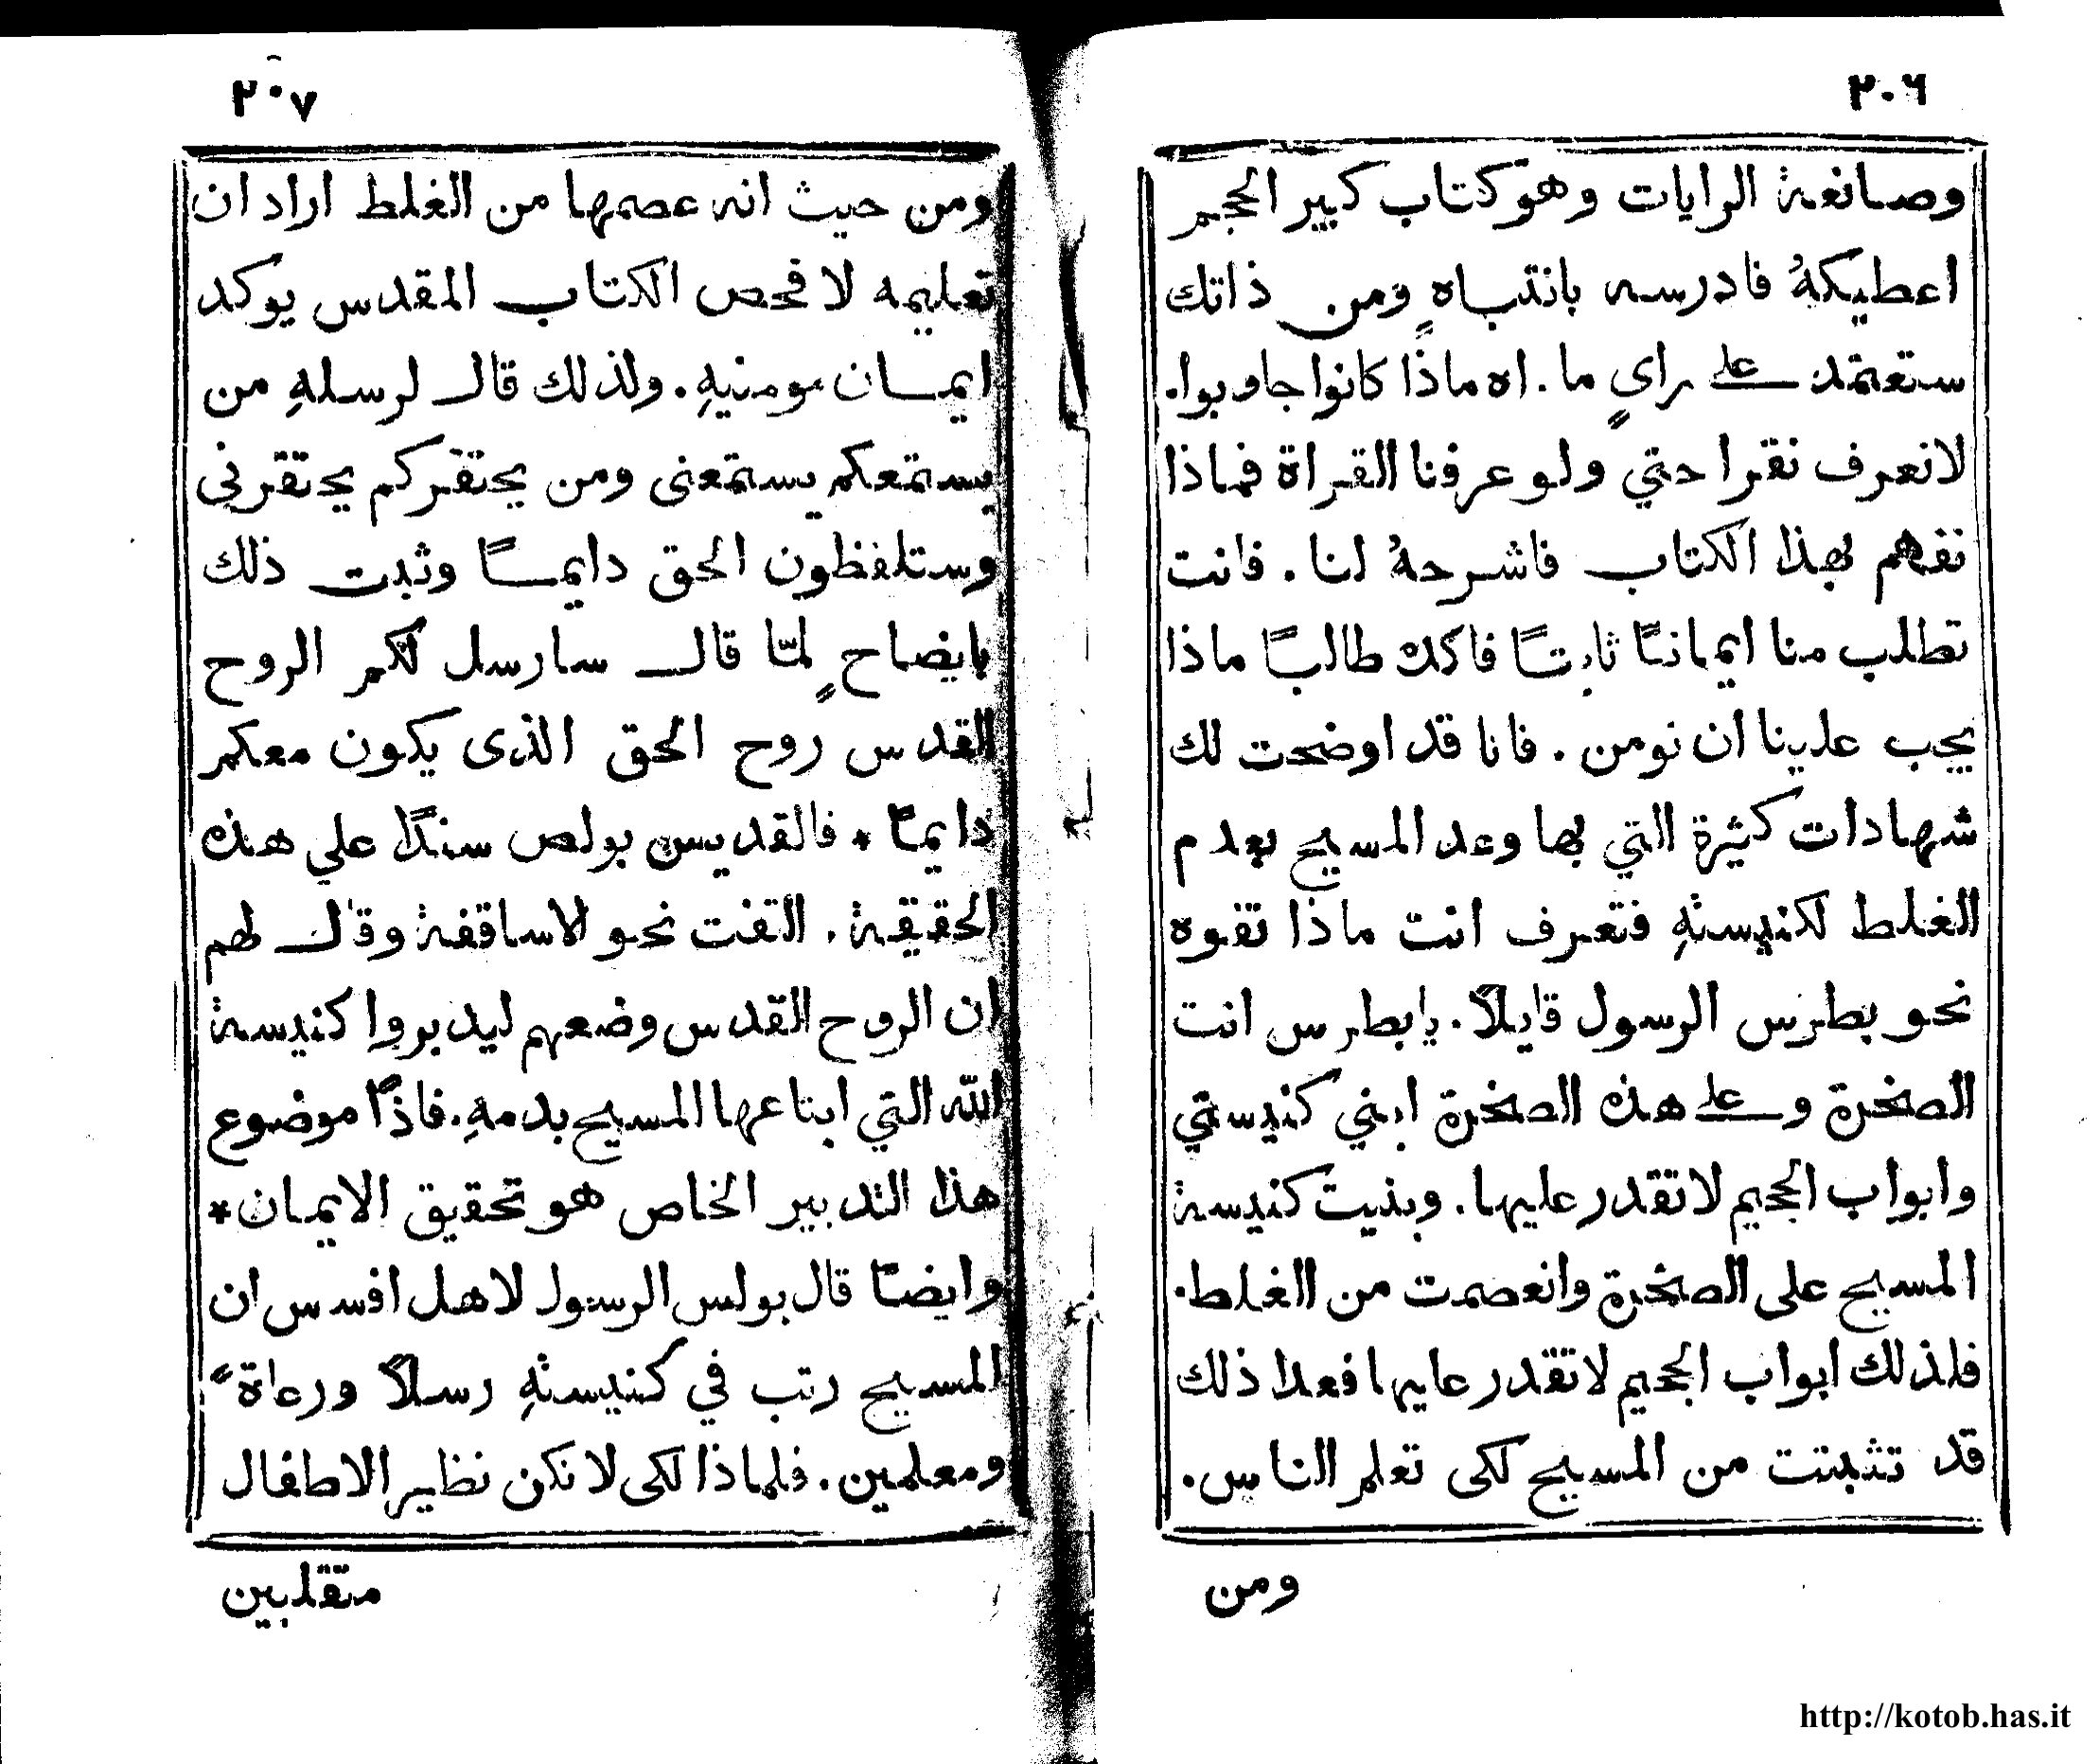 ٢٠٦
وصانعة الرايات وهو كتاب كبير الحجم
اعطيكهُ فادرسه بانتباهٍ ومن ذاتك
ستعتمد على رايٍ ما. اه ماذا كانوا جاوبوا.
لانعرف نقرا حتي ولو عرفنا القراة فماذا
نفهم بهذا الكتاب فاشرحهُ لنا. فانت
تطلب منا ايمانـًا ثابتـًا فاكده طالبـًا ماذا
يجب علينا ان نومن. فانا قد اوضحت لك
شهادات كثيرة التي بها وعد المسيح بعدم
الغلط لكنيستهِ فتعرف انت ماذا تفوه
نحو بطرس الرسول قايلاً. يابطرس انت
الصخرة وعلى هذه الصخرة ابني كنيستي
وابواب الجحيم لاتقدر عليها. وبنيت كنيسة
المسيح على الصخرة وانعصمت من الغلط.
فلذلك ابواب الجحيم لاتقدر عليها فعدا ذلك
قد تثبتت من المسيح لكى تعلم الناس.
ومن
٢٠٧
ومن حيث انه عصمها من الغلط اراد ان
تعليمه لا فحص الكتاب المقدس يوكد
ايمـان مومنيهِ. ولذلك قال لرسلهِ من
يستمعكم يستمعنى ومن يحتقركم يحتقرنى
وستلفظون الحق دايمـًا وثبت ذلك
بايضاحٍ لمّا قال سارسل لكم الروح
القدس روح الحق الذى يكون معكم
دايمـًا * فالقديس بولص سندًا علي هذه
الحقيقة. التفت نحو الاساقفة وقال لهم
ان الروح القدس وضعهم ليدبروا كنيسة
الله التي ابتاعها المسيح بدمهِ. فاذًا موضوع
هذا التدبير الخاص هو تحقيق الايمان *
وايضـًا قال بولس الرسول لاهل افسس ان
المسيح رتب في كنيستهِ رسلاً ورعاةً
ومعلمين. فلماذا لكى لا نكن نظير الاطفال
متقلبين
http://kotob.has.it